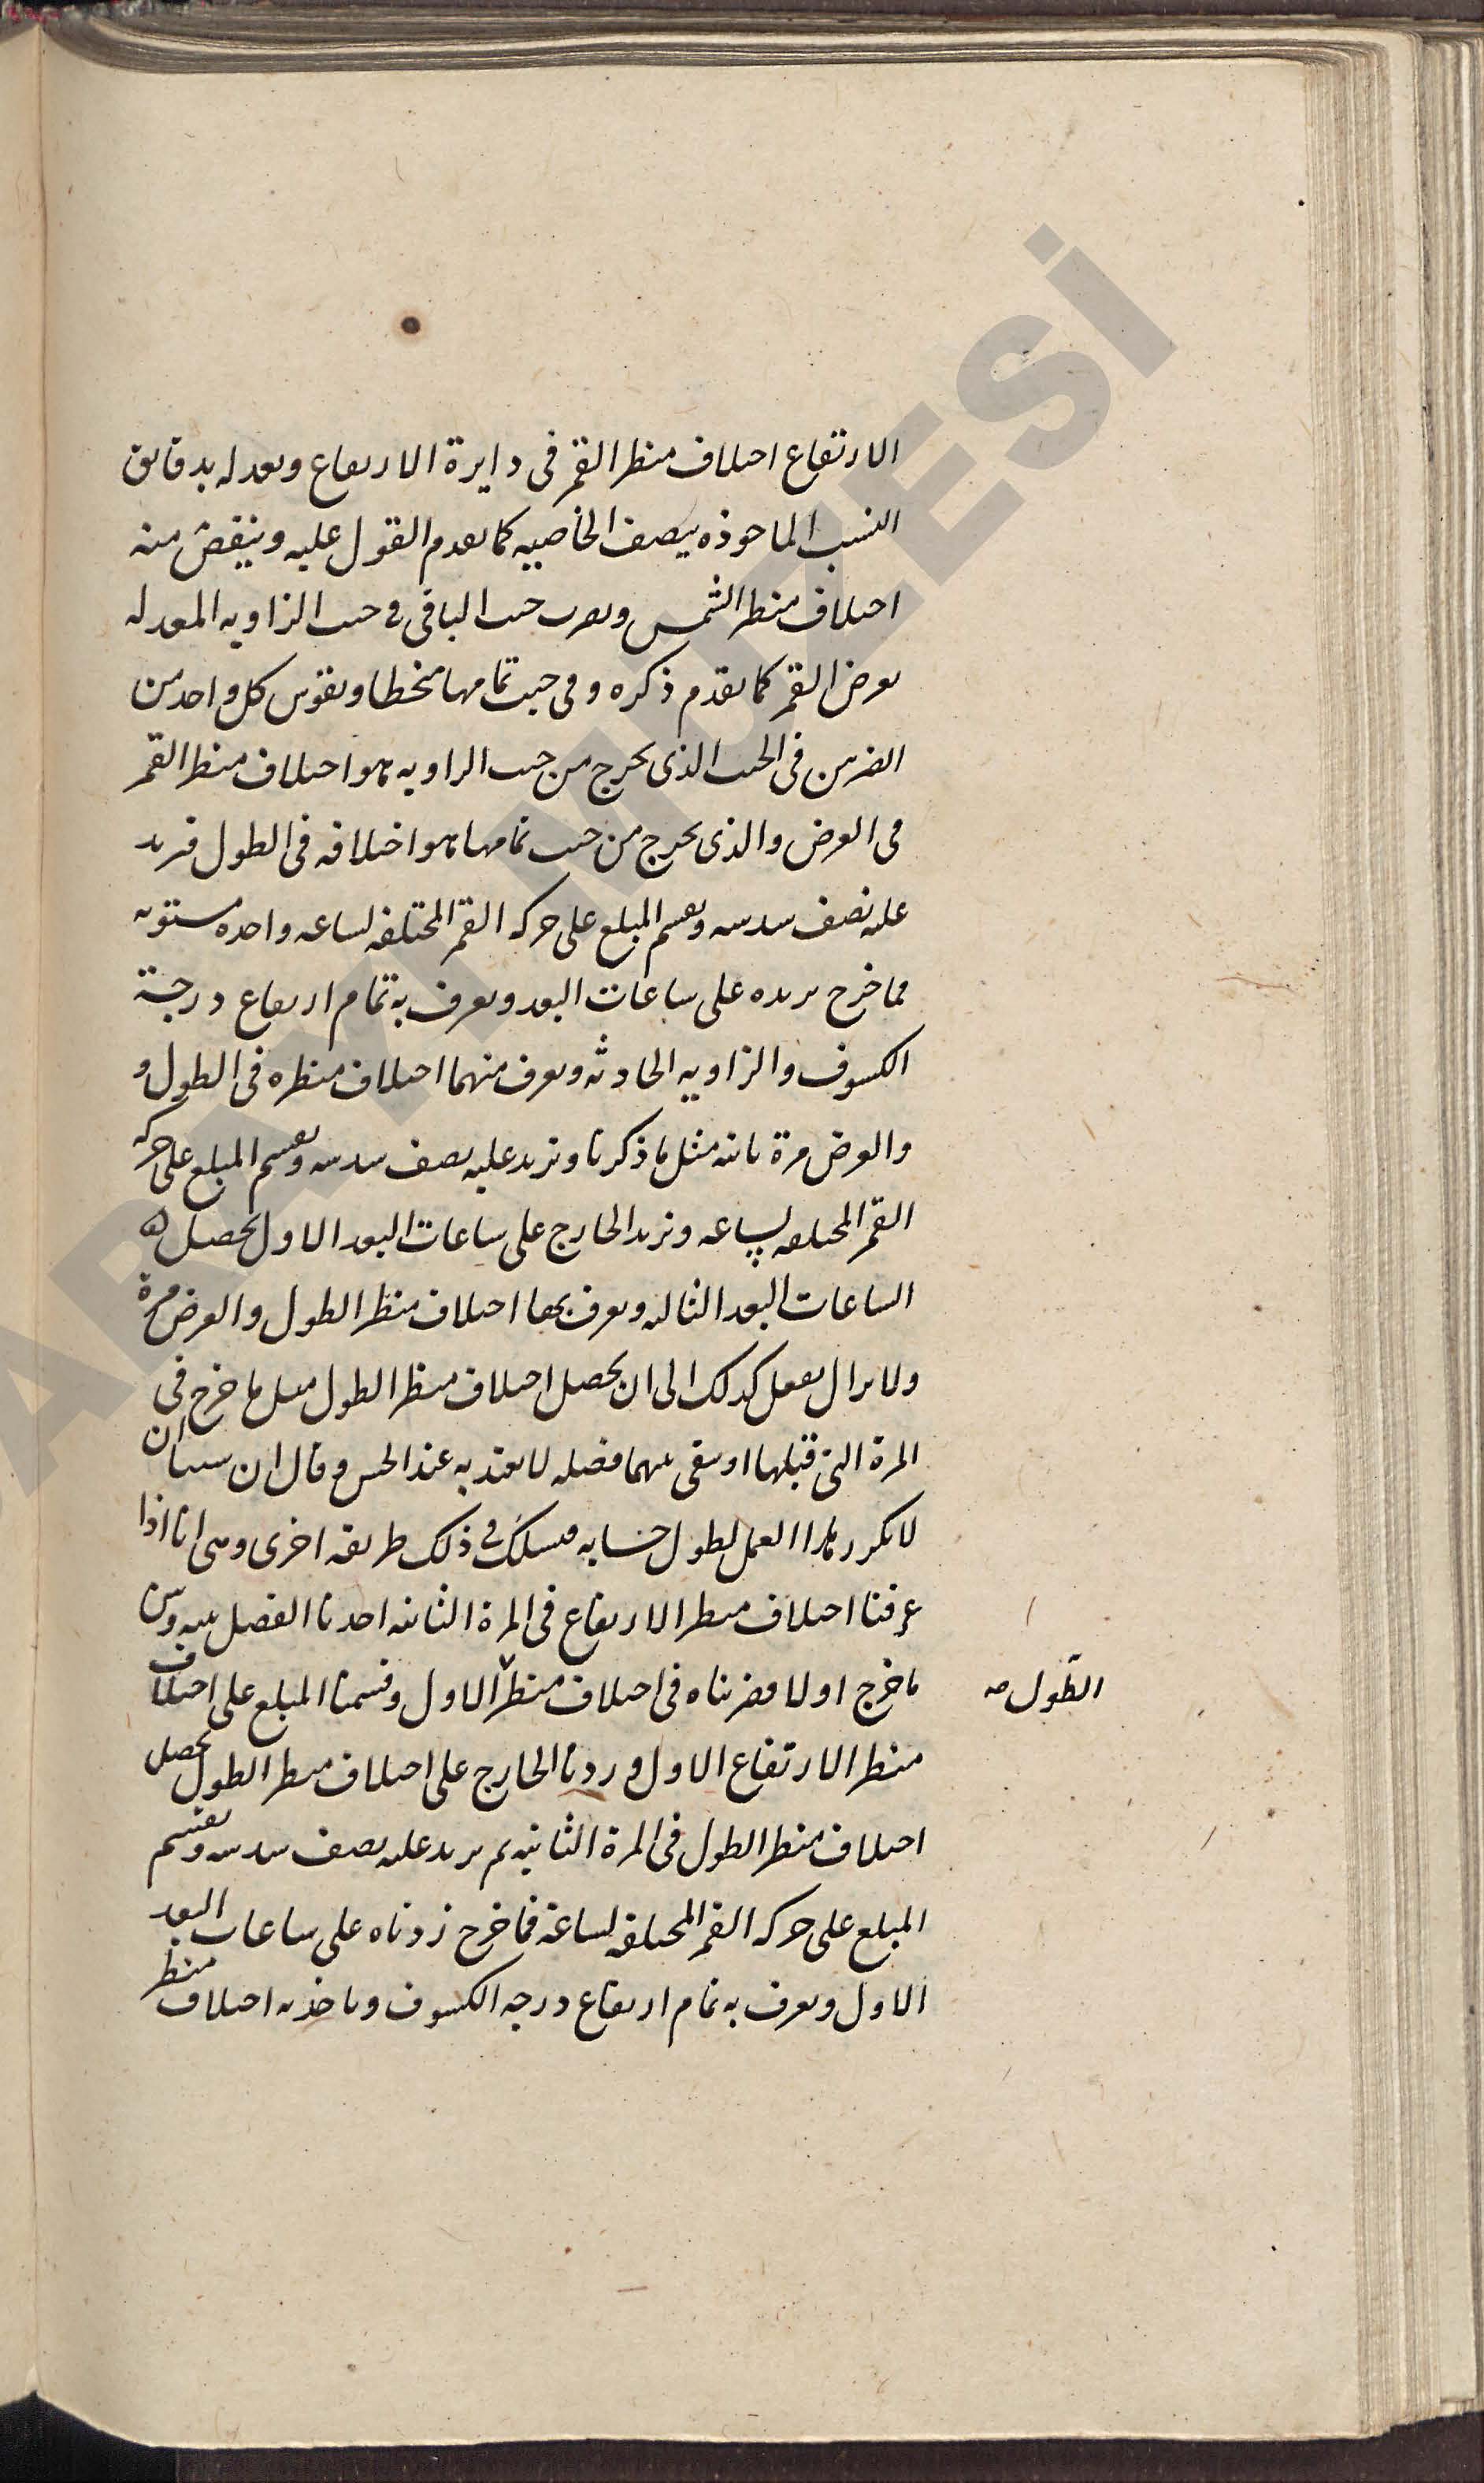 الارتفاع اختلاف منظر القمر فى دايرة الارتفاع ونعدله بدقايق
النسب الماخوذه بنصف الخاصيه كما تقدم القول عليه وينقص منه
اختلاف منظر الشمس ونضرب جيب الباقى فى جيب الزاويه المعدله
بعرض القمر كما تقدم ذكره وفى جيب تمامها منحطا ونقوس كل واحد من
الضربين فى الجيب الذى يخرج من جيب الزاويه هو اختلاف منظر القمر
فى العرض والذى يخرج من جيب تمامها هو اختلافه فى الطول فنزيد
عليه نصف سدسه ونقسم المبلغ على حركه القمر المختلفه لساعه واحده مستويه
فما خرج نزيده على ساعات البعد ونعرف به تمام ارتفاع درجة
الكسوف والزاويه الحادثه ونعرف منهما اختلاف منظره فى الطول و
والعرض مرة ثانيه مثل ما ذكرنا ونزيد عليه نصف سدسه ونقسم المبلغ على حركه
القمر المختلفه لساعه ونزيد الخارج على ساعات البعد الاول يحصل
الساعات البعد الثالثه ونعرف بها اختلاف منظر الطول والعرض مرة
ولا نزال نفعل كذلك الى ان يحصل اختلاف منظر الطول مثل ما خرج فى
المرة التى قبلها او يبقى بينهما فضله لا يعتد به عند الحس وقال ان شينا ان
لا نكرر هذا العمل لطول حسابه فنسلك فى ذلك طريقه اخرى وهى انا اذا
عرفنا اختلاف منظر الارتفاع فى المرة الثانيه اخذنا الفضل بينه وبين
ما خرج اولا وضربناه فى اختلاف منظر الاول وقسمنا المبلغ على اختلاف
الطول صح
منظر الارتفاع الاول وزدنا الخارج على اختلاف منظر الطول يحصل
اختلاف منظر الطول فى المرة الثانيه ثم نزيد عليه نصف سدسه ونقسم
المبلغ على حركه القمر المختلفه لساعة فما خرج زدناه على ساعات البعد
الاول ونعرف به تمام ارتفاع درجه الكسوف وناخذ به اختلاف منظر